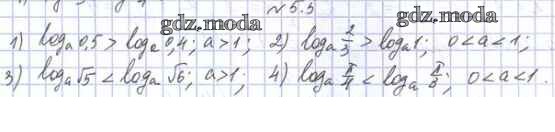 №5.5
gdz.moda
gdz.moda
1) logₐ0,5 > logₐ0,4; a>1; 2) logₐ 2/3 > logₐ1; 0<a<1;
3) logₐ√5 < logₐ√6; a>1; 4) logₐ π/4 < logₐ π/8; 0<a<1.